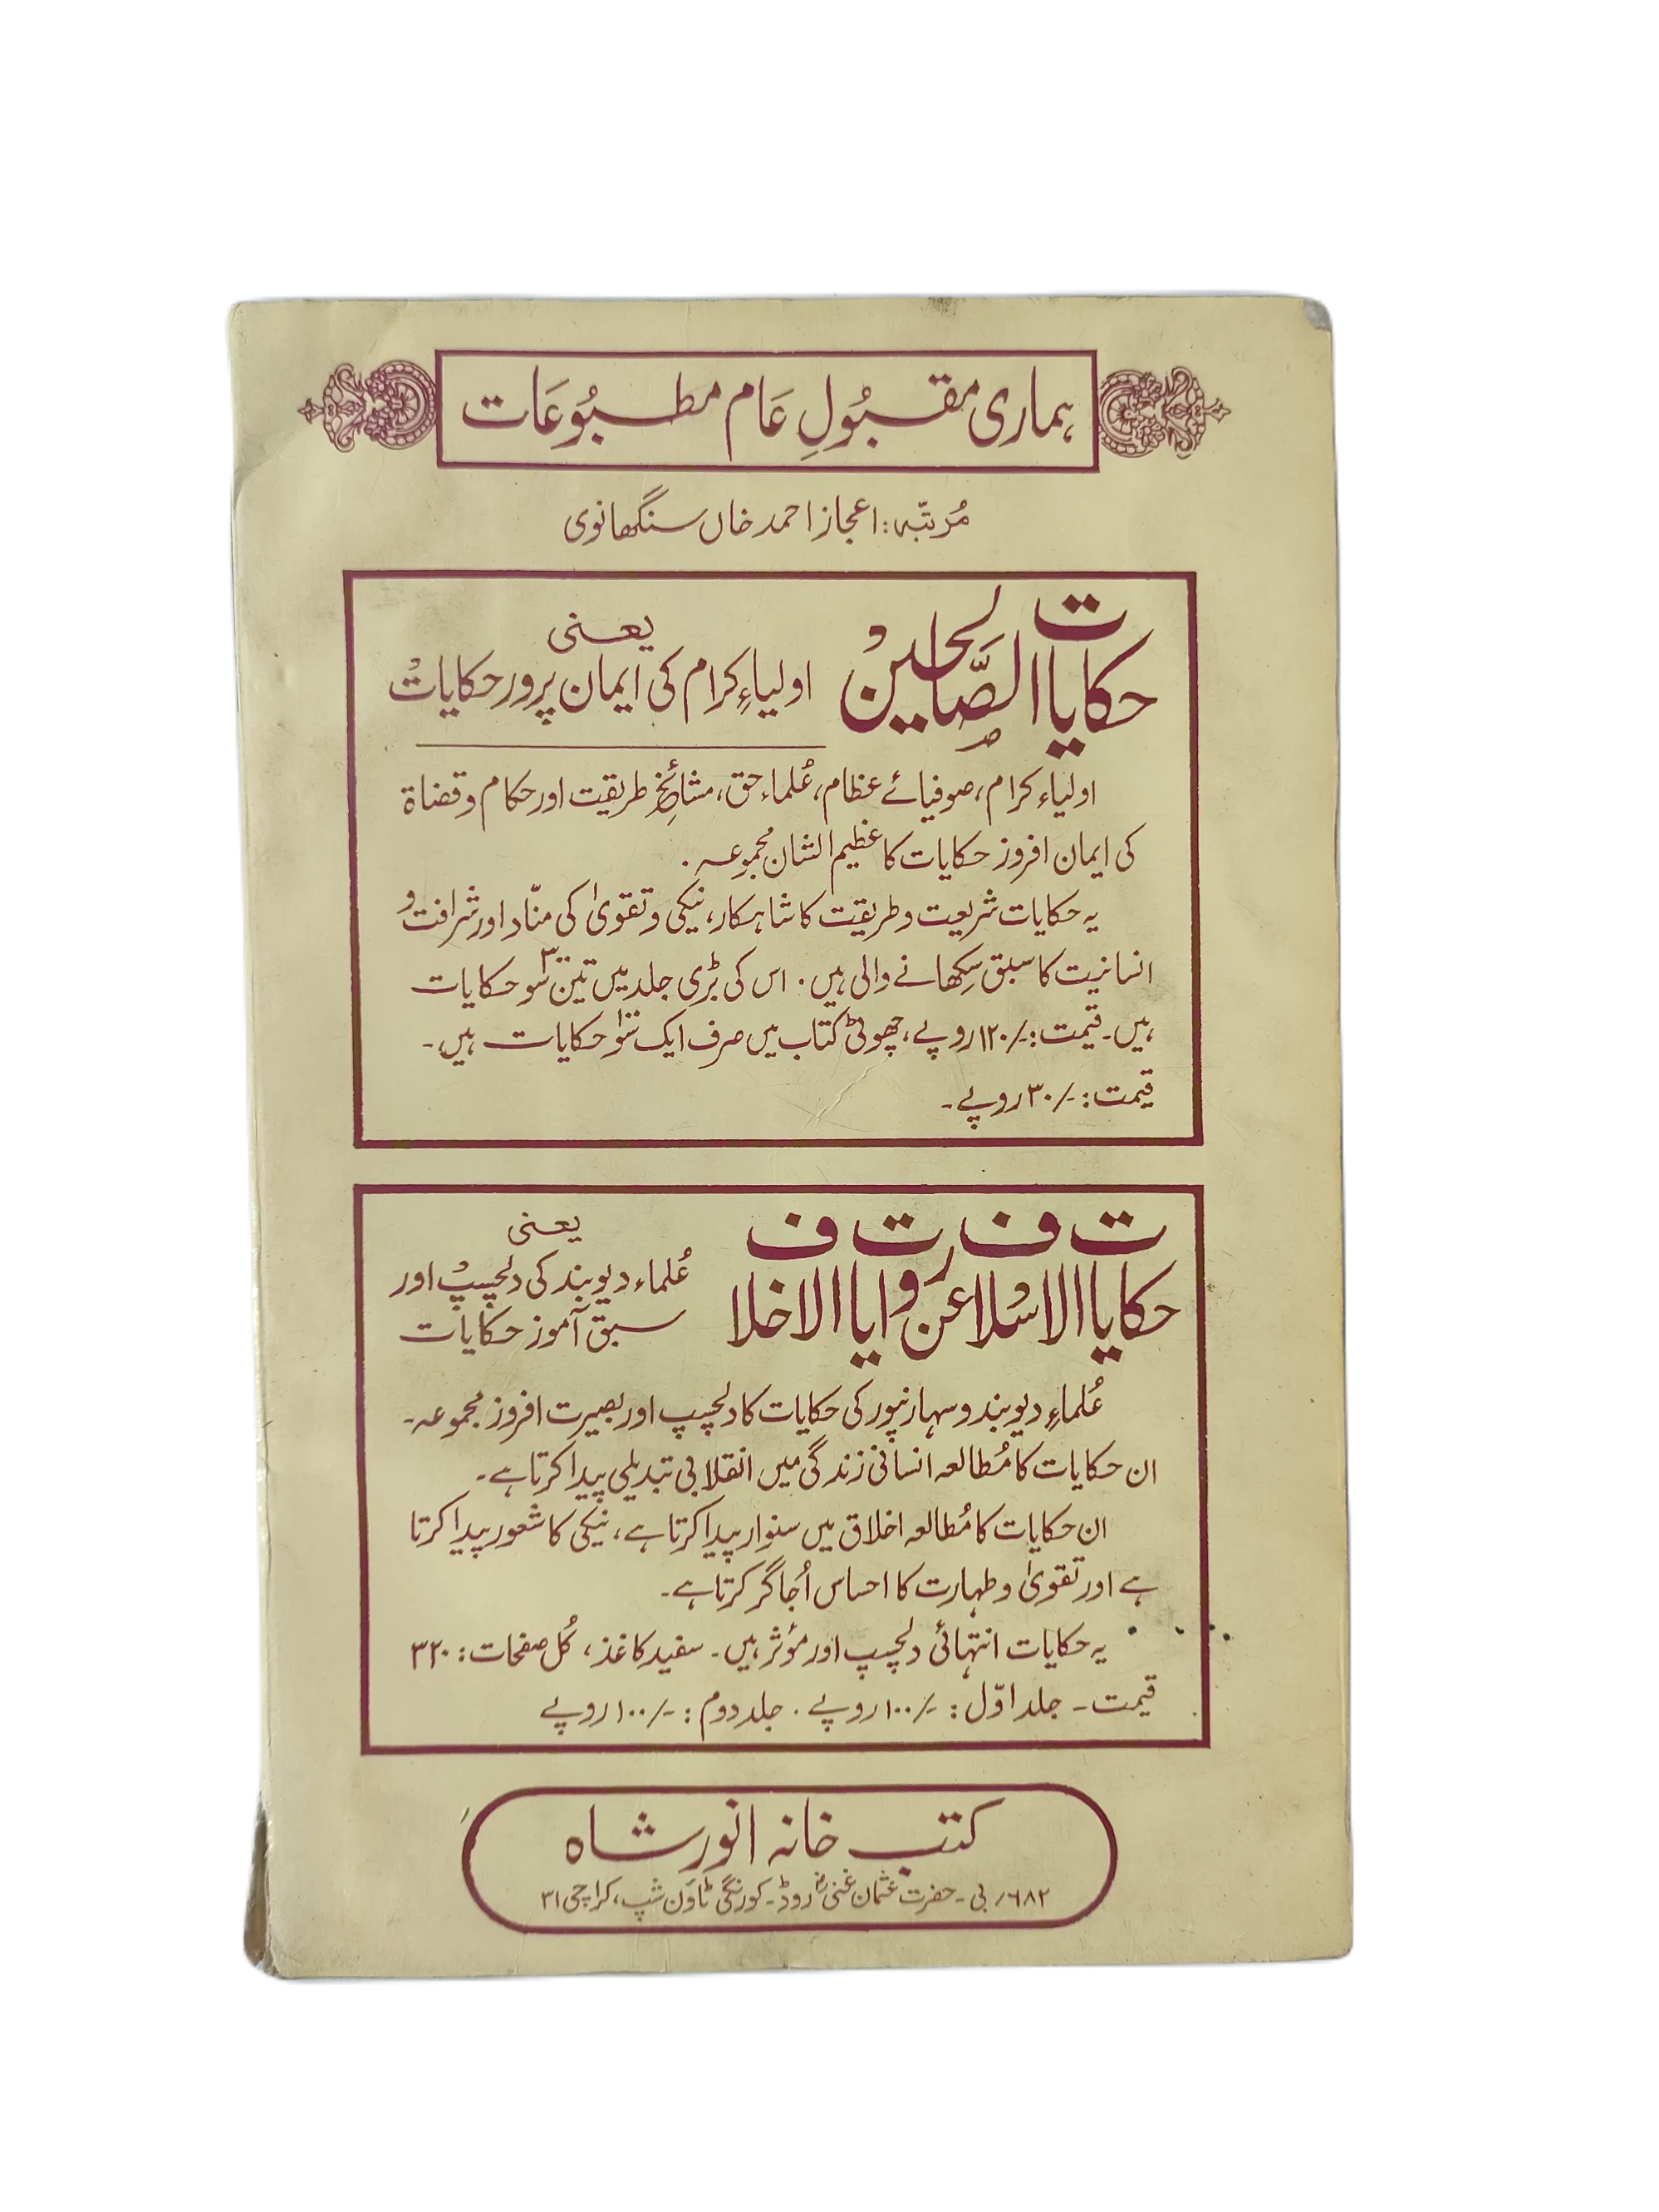 ہماری مقبُولِ عَام مطبُوعَات
مُرتّبہ: اعجاز احمد خاں سنگھانوی
حکایات الصَّالحین
یعنی
اولیاءِ کرام کی ایمان پرور حکایات
اولیاء کرام، صوفیائے عظام، عُلماء حق، مشائخِ طریقت اور حکام و قضاۃ
کی ایمان افروز حکایات کا عظیم الشان مجموعہ.
یہ حکایات شریعت و طریقت کا شاہکار، نیکی و تقویٰ کی منّاد اور شرافت و
انسانیت کا سبق سِکھانے والی ہیں. اس کی بڑی جلد میں تین ۳۰۰ سو حکایات
ہیں۔ قیمت: -/۱۲۰ روپے، چھوٹی کتاب میں صرف ایک ۱۰۰ سو حکایات ہیں۔
قیمت: -/۳۰ روپے۔
حکایات الاسلاف عن روایات الاخلاف
یعنی
عُلماء دیوبند کی دلچسپ اور
سبق آموز حکایات
عُلماءِ دیوبند و سہارنپور کی حکایات کا دلچسپ اور بصیرت افروز مجموعہ۔
ان حکایات کا مُطالعہ انسانی زندگی میں انقلابی تبدیلی پیدا کرتا ہے۔
ان حکایات کا مُطالعہ اخلاق میں سنوار پیدا کرتا ہے، نیکی کا شعور پیدا کرتا
ہے اور تقویٰ و طہارت کا احساس اُجاگر کرتا ہے۔
یہ حکایات انتہائی دلچسپ اور مؤثر ہیں۔ سفید کاغذ، کُل صفحات: ۳۲۰
قیمت۔ جلد اوّل: -/۱۰۰ روپے. جلد دوم: -/۱۰۰ روپے
کتب خانہ انور شاہ
۶۸۲/ بی۔ حضرت عثمان غنیؓ روڈ۔ کورنگی ٹاؤن شپ، کراچی ۳۱